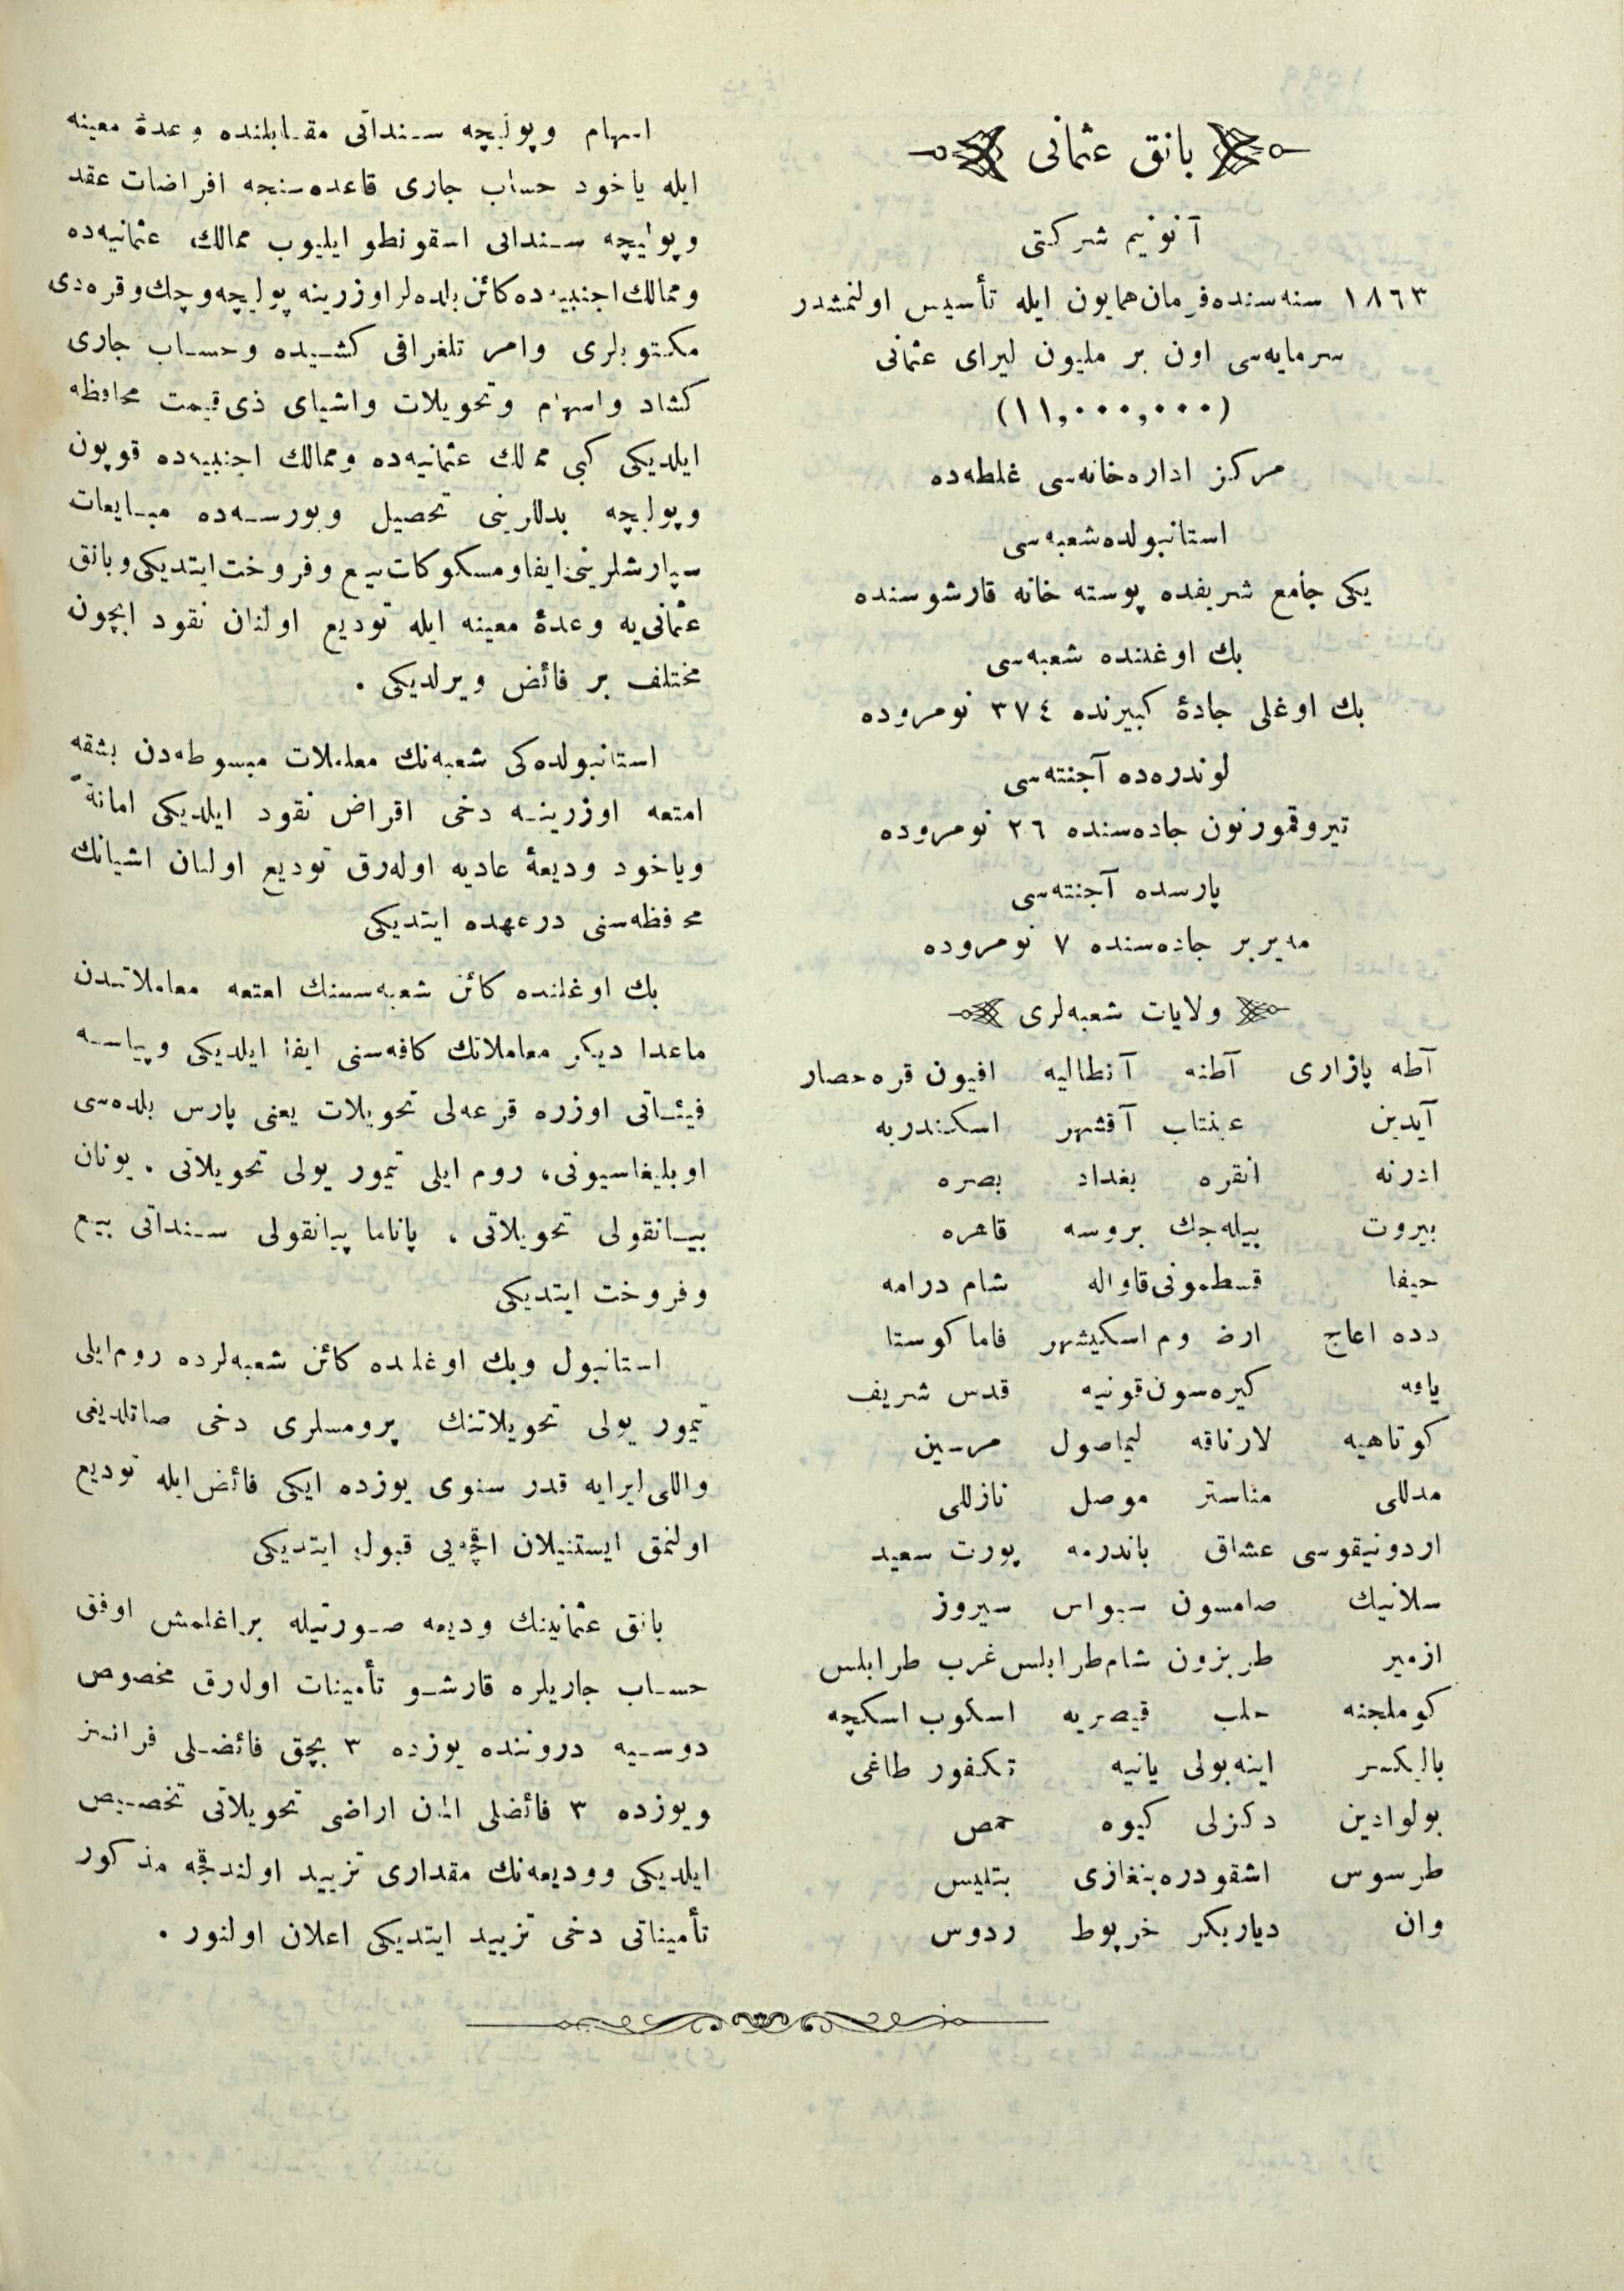 بانق عثمانی
آنونیم شرکتی
١٨٦٣ سنه‌سنده فرمان همایون ایله تأسیس اولنمشدر
سرمایه‌سی اون بر ملیون لیرای عثمانی
(١١,٠٠٠,٠٠٠)
مرکز اداره‌خانه‌سی غلطه‌ده
استانبولده شعبه‌سی
یکی جامع شریفده پوسته خانه قارشوسنده
بك اوغلنده شعبه‌سی
بك اوغلی جادهٔ کبیرنده ٣٧٤ نومروده
لوندره‌ده آجنته‌سی
تیروقمورتون جاده‌سنده ٢٦ نومروده
پارسده آجنته‌سی
مه‌یربر جاده‌سنده ٧ نومروده
ولایات شعبه‌لری
آطه پازاری آطنه آنطالیه افیون قره‌حصار
آیدین عینتاب آقشهر اسکندریه
ادرنه انقره بغداد بصره
بیروت بیله‌جك بروسه قاهره
حیفا قسطمونی قاواله شام درامه
دده اغاج ارضروم اسکیشهر فاماکوستا
یافه کیره‌سون قونیه قدس شریف
کوتاهیه لارناقه لیماصول مرسین
مدللی مناستر موصل نازللی
اردو نیقوسی عشاق باندرمه پورت سعید
سلانیك صامسون سیواس سیروز
ازمیر طربزون شام طرابلس غرب طرابلس
کوملجنه حلب قیصریه اسکوب اسکچه
بالیکسر اینه‌بولی یانیه تکفور طاغی
بولوادین دکزلی کیوه حمص
طرسوس اشقودره بنغازی بتلیس
وان دیاربکر خرپوط ردوس
اسهام وپولیچه سنداتی مقابلنده وعدهٔ معینه
ایله یاخود حساب جاری قاعده‌سنجه اقراضات عقد
وپولیچه سنداتی اسقونطو ایلیوب ممالك عثمانیه‌ده
وممالك اجنبیه‌ده کائن بلده‌لر اوزرینه پولیچه وچك وقره‌دی
مکتوبلری وامر تلغرافی کشیده وحساب جاری
کشاد واسهام وتحویلات واشیای ذی‌قیمت محافظه
ایلدیکی کبی ممالك عثمانیه‌ده وممالك اجنبیه‌ده قوپون
وپولیچه بدللرینی تحصیل وبورسه‌ده مبایعات
سپارشلرینی ایفا ومسکوکات بیع وفروخت ایتدیکی وبانق
عثمانی‌یه وعدهٔ معینه ایله تودیع اولنان نقود ایچون
مختلف بر فائض ویرلدیکی .
استانبولده‌کی شعبه‌نك معاملات مبسوطه‌دن بشقه
امتعه اوزرینه دخی اقراض نقود ایلدیکی امانةً
ویاخود ودیعهٔ عادیه اوله‌رق تودیع اولنان اشیانك
محافظه‌سنی درعهده ایتدیکی
بك اوغلنده کائن شعبه‌سنك امتعه معاملاتندن
ماعدا دیکر معاملاتك کافه‌سنی ایفا ایلدیکی وپیاسه
فیئاتی اوزره قرعه‌لی تحویلات یعنی پارس بلده‌سی
اوبلیغاسیونی، روم ایلی تیمور یولی تحویلاتی . یونان
پیانقولی تحویلاتی ، پاناما پیانقولی سنداتی بیع
وفروخت ایتدیکی
استانبول وبك اوغلنده کائن شعبه‌لرده روم‌ایلی
تیمور یولی تحویلاتنك پرومسلری دخی صاتلدیغی
واللی لیرایه قدر سنوی یوزده ایکی فائض ایله تودیع
اولنمق ایستنیلان اقچه‌یی قبول ایتدیکی
بانق عثمانینك ودیعه صورتیله براغلمش اوفق
حساب جاریلره قارشو تأمینات اوله‌رق مخصوص
دوسیه دروننده یوزده ٣ بچق فائضلی فرانسز
ویوزده ٣ فائضلی المان اراضی تحویلاتی تخصیص
ایلدیکی وودیعه‌نك مقداری تزیید اولندقجه مذکور
تأمیناتی دخی تزیید ایتدیکی اعلان اولنور .